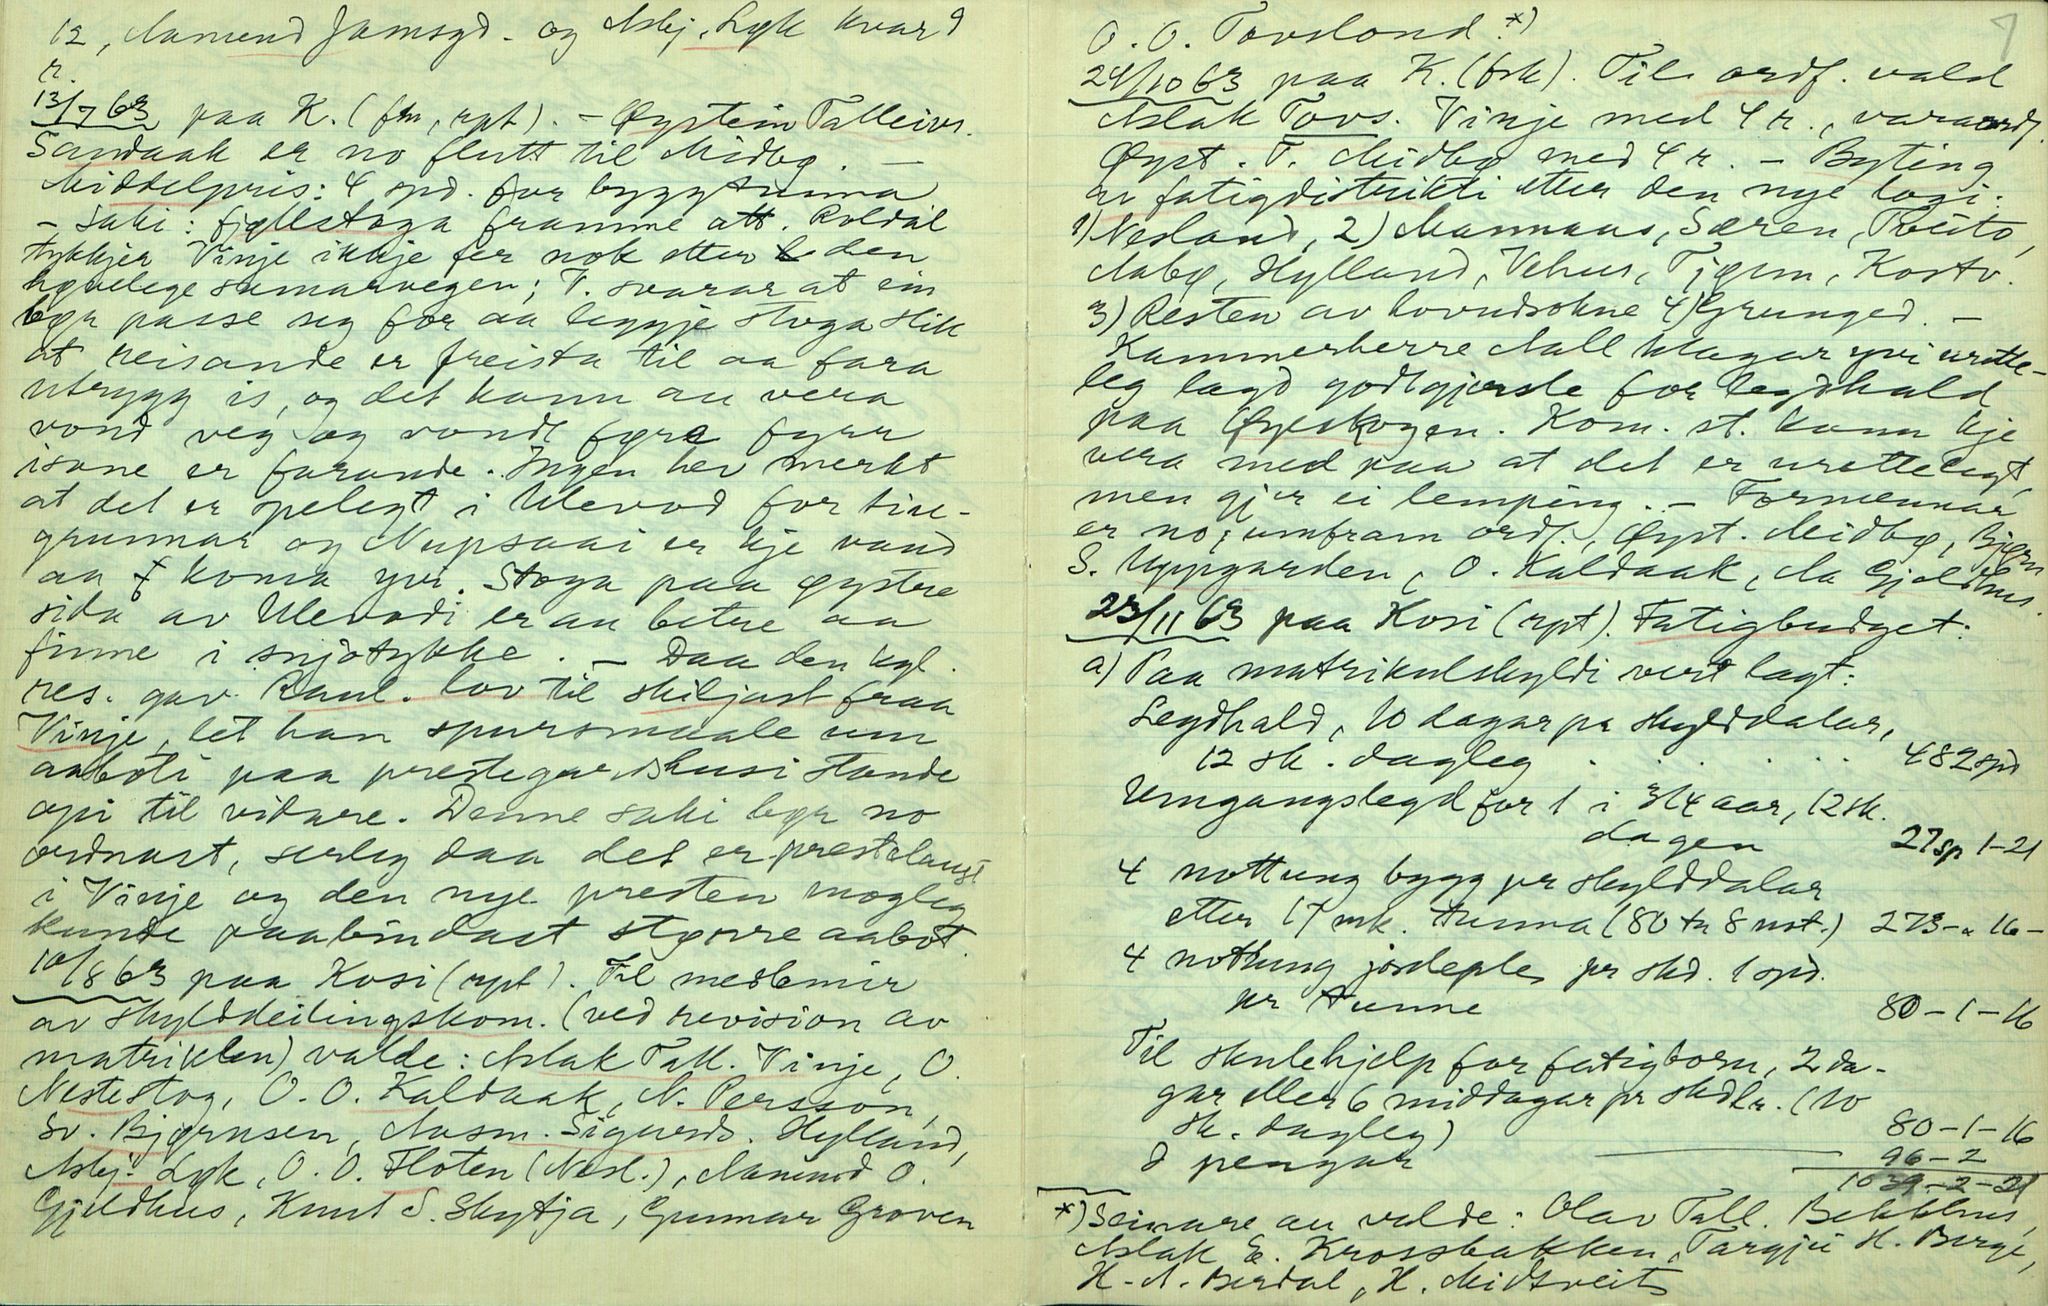 12, Aamund Jamsgd. og Asbj. Lyk kvar 9
r.
13/7 63 paa K. (fm, rpt). - Øystein Talleivs.
Sandaak er no flutt til Midbø. -
Middelpris: 4 spd. for byggtunna
- Saki: fjøllstoga framme att. Roldal
tykkjer Vinje ikkje fer nok etter den
høvelege sumarvegen; V. svarar at ein
bør passe seg for aa leggje stoga slik
at reisande er freista til aa fara
utrygg is, og det kann au vera
vond veg og vondt føre fyrr
isane er farande. Ingen hev merkt
at det er spelegt i Ulevod for tine-
grunnar og Nupsaai er kje vand
aa koma yvi. Stoga paa øystre
sida av Ulevodi er au betre aa
finne i snjotykke. - Daa den kgl.
res. gav Raul. lov til skiljast fraa
Vinje, let han spursmaale um
aaboti paa prestegardshusi stande
opi til vidare. Denne saki bør no
ordnast, serleg daa det er prestelaust
i Vinje og den nye presten mogleg
kunde paabindast større aabot.
10/8 63 paa Kosi (rpt). Til meslemir
av skylddeilingskom. (ved revision av
matriklen) valde: Aslak Tall. Vinje, O.
Nestestog, O. O. Kaldaak, N. Persson,
Sv. Bjørnsen, Aasm. Sigurds. Hylland,
Asbj. Lyk, O. O. Floten (Nesl.), Aamund O.
Gjeldhus, Knut S. Skytja, Gunnar Groven
7
O. O. Tovslond.*)
24/10 63 paa K. (fsk). Til ordf. vald
Aslak Tovs. Vinje med 4 r., varaordf.
Øyst. T. Midbø med 4 r. - Byting
av fatigdistrikti etter den nye logi:
1) Nesland, 2) Mannaas, Særen,
Aabø, Hylland, Vehus, Tjønn, Kostv.
3) Resten av hovudsokne 4) Grunged. -
Kammerherre Aall klagar yvi urette-
leg lagd godtgjersle for legdhald
paa Øyeskogen. Kom. st. kann kje
vera med paa at det er urettelegt,
men gjer ei lemping. - Formennar
er no, umfram ordf., Øyst. Midbø, Bjørn
S. Uppgarden, O. Kaldaak, Aa Gjeldhus.
23/11 63 paa Kosi (rpt). Fatigbudget:
a) Paa matrikulskyldi vert lagt:
Legdhald, 10 dagar pr skylddalar,
12 sk. dagleg . . . . . 482 spd
Umgangslegd for 1 i 3/4 aar, 12 sk.
dagen 27 sp 1-21
4 nottung bygg pr skylddalar
etter 17 mk. tunna (80 tn 8 not.) 273 - " 16 -
4 nottung jordeple pr skd. 1 spd.
pr tunne 80 - 1 - 16
Til skulehjelp for fatigborn, 2 da-
gar eller 6 middagar pr skdlr. (10
sk. dagleg) 80 - 1 - 16
I pengar 96 - 2
1039 - 2 - 21
*) Seinare au valde: Olav Tall. Bekkhus,
Aslak E. Krossbakken, Targjei H. Berge,
H. A. Berdal, H. Midtveit